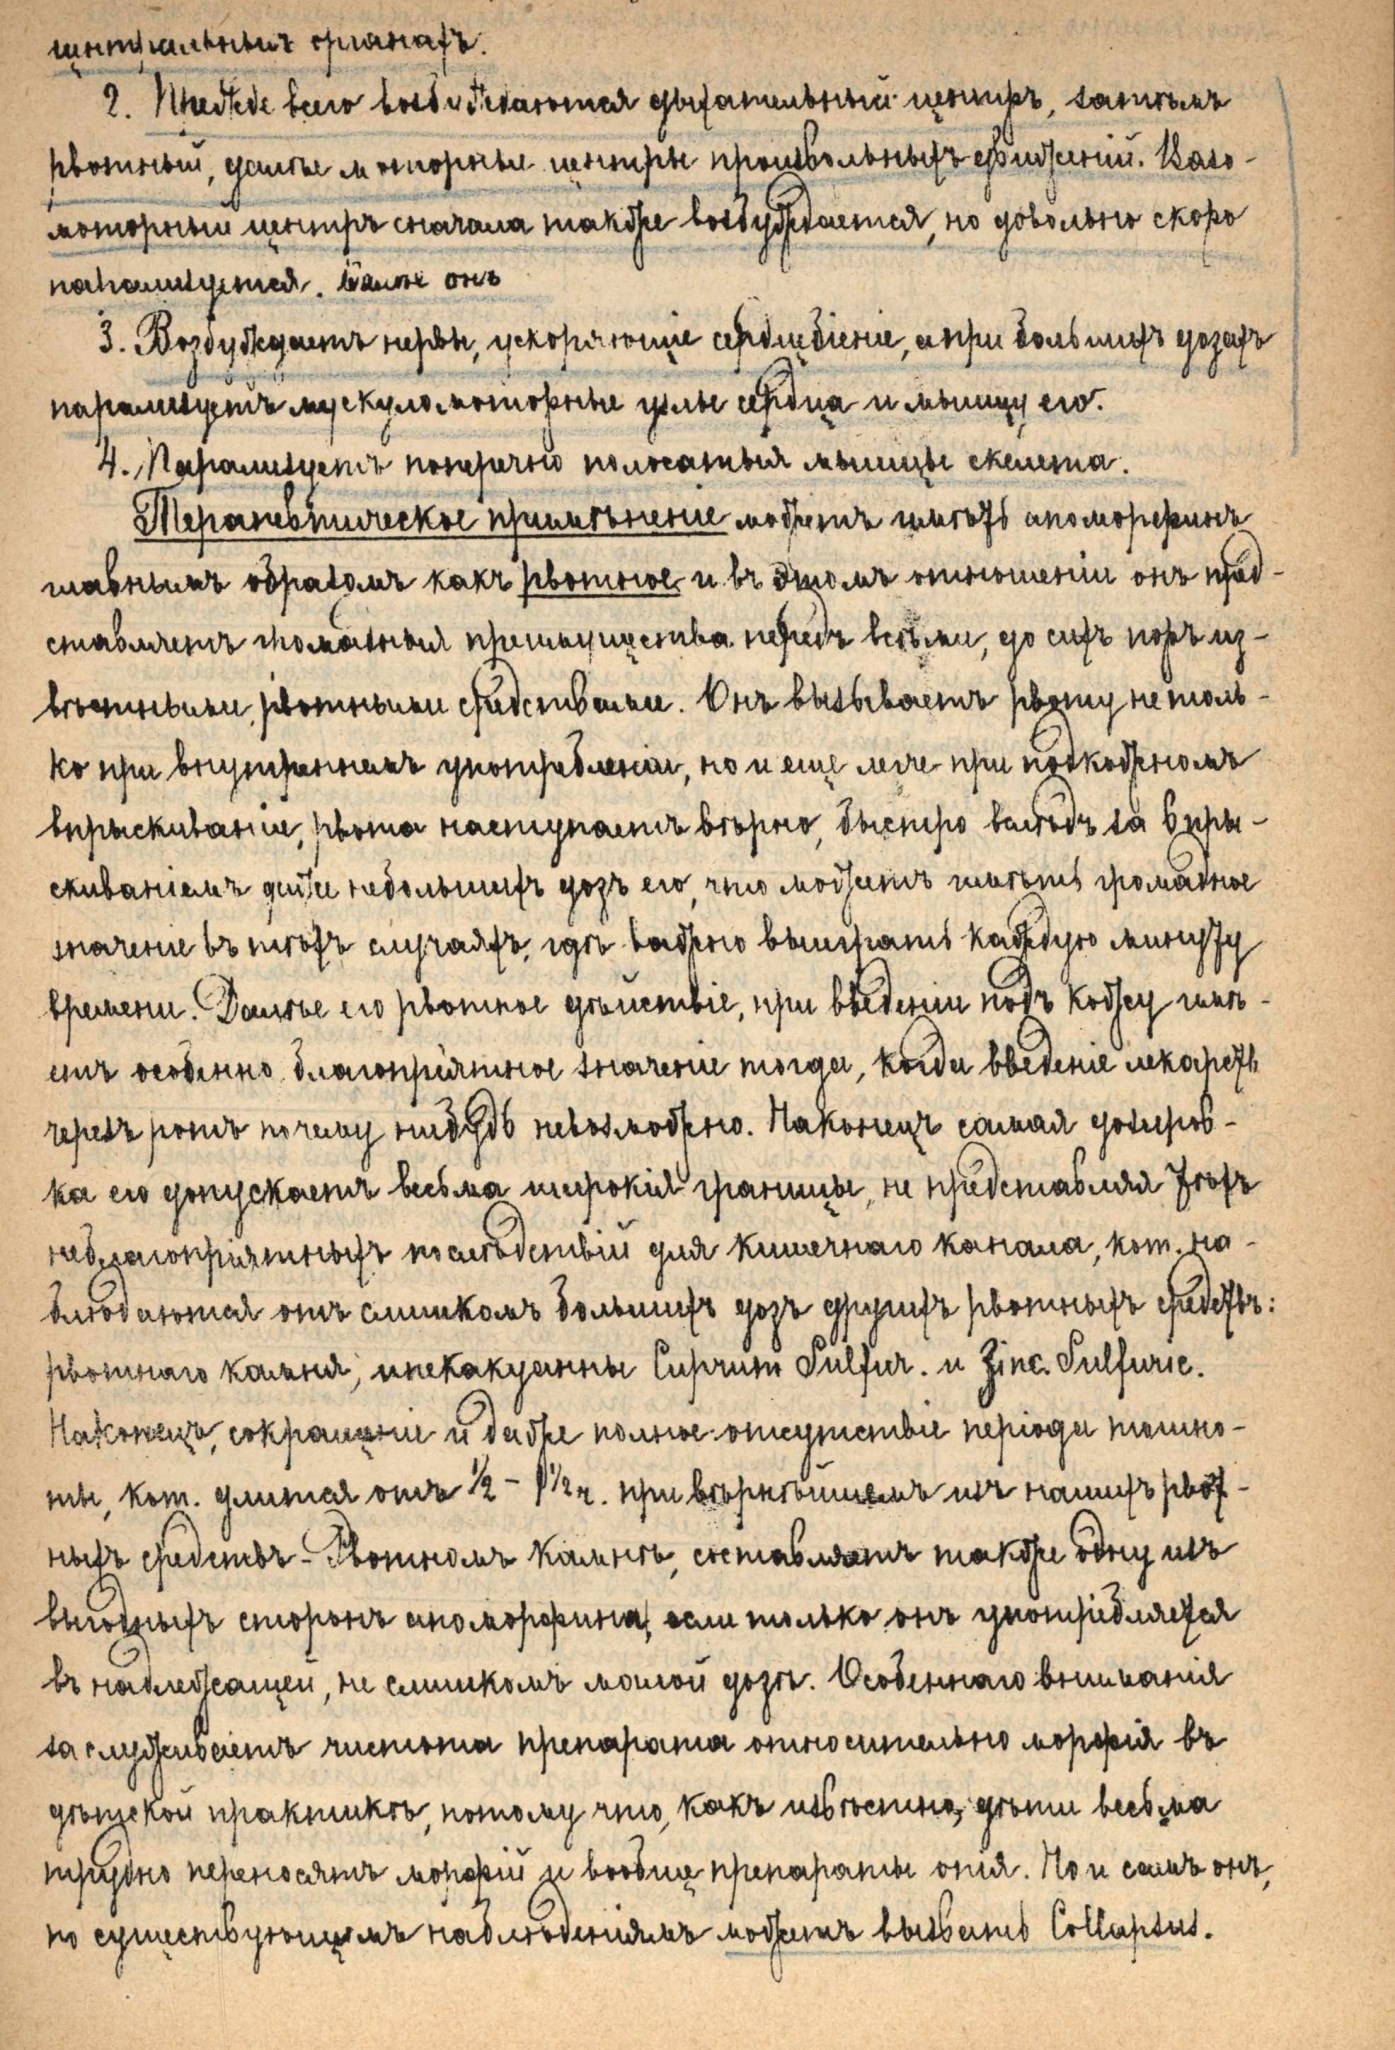 центральныхъ органахъ.
2. Прежде всего возбуждаются дыхательный центръ, затѣмъ
рвотный, далѣе моторные центры произвольныхъ движеній. Вазо-
моторный центръ сначала также возбуждается, но довольно скоро
парализуется. Далѣе онъ
3. Возбуждаетъ нервы, ускоряющіе сердцебіеніе, а при большихъ дозахъ
парализуетъ мускуломоторные узлы сердца и мышцу его.
4. Парализуетъ поперечно полосатыя мышцы скелета.
Терапевтическое примѣненіе можетъ имѣть апоморфинъ
главнымъ образомъ какъ рвотное и въ этомъ отношеніи онъ пред-
ставляетъ громадныя преимущества передъ всѣми, до сихъ поръ из-
вѣстными, рвотными средствами. Онъ вызываетъ рвоту не толь-
ко при внутреннемъ употребленіи, но и еще легче при подкожномъ
впрыскиваніи, рвота наступаетъ вѣрно, быстро вслѣдъ за впры-
скиваніемъ даже небольшихъ дозъ его, что можетъ имѣть громадное
значеніе въ тѣхъ случаяхъ, гдѣ важно выиграть каждую минуту
времени. Далѣе его рвотное дѣйствіе, при введеніи подъ кожу имѣ-
етъ особенно благопріятное значеніе тогда, когда введеніе лекарств
черезъ ротъ почему нибудь невозможно. Наконецъ самая дозиров-
ка его допускаетъ весьма широкія границы, не представляя тѣхъ
неблагопріятныхъ послѣдствій для кишечнаго канала, кот. на-
блюдаются отъ слишкомъ большихъ дозъ другихъ рвотныхъ средствъ:
рвотнаго камня, ипекакуанны Cuprum Sulfur. и Zinc. Sulfuric.
Наконецъ, сокращеніе и даже полное отсутствіе періода тошно-
ты, кот. длится отъ ½ - 1½ ч. при вѣрнѣйшемъ изъ нашихъ рвот-
ныхъ средствъ - Рвотномъ камнѣ, составляетъ также одну изъ
выгодныхъ сторонъ апоморфина, если только онъ употребляется
въ надлежащей, не слишкомъ малой дозѣ. Особеннаго вниманія
заслуживаетъ чистота препарата относительно морфія въ
дѣтской практикѣ, потому что, какъ извѣстно, дѣти весьма
трудно переносятъ морфій и вообще препараты опія. Но и самъ онъ,
по существующимъ наблюденіямъ можетъ вызвать Collapsus.